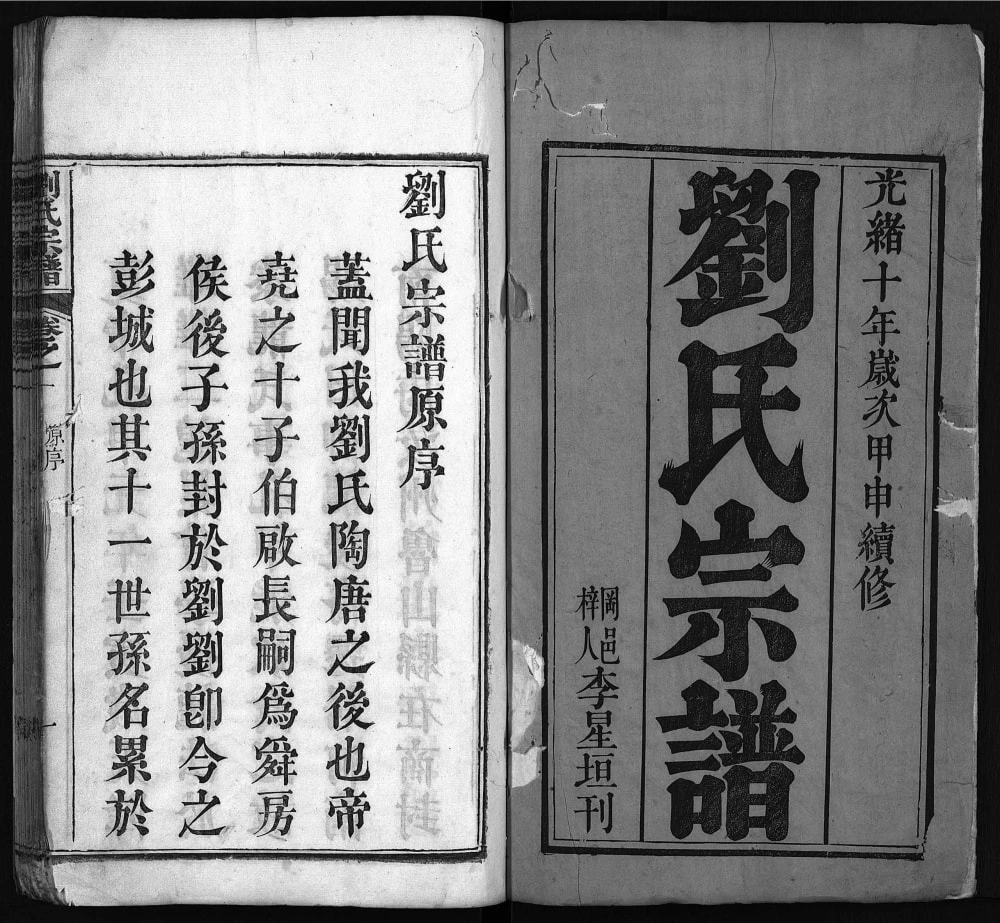 光緒十年歲次甲申續修
劉氏宗譜
岡邑
梓人
李星垣刊
劉氏宗譜原序
蓋聞我劉氏陶唐之後也帝
堯之十子伯啟長嗣爲舜房
侯後子孫封於劉劉卽今之
彭城也其十一世孫名累於
劉氏宗譜
卷之一
原序
一